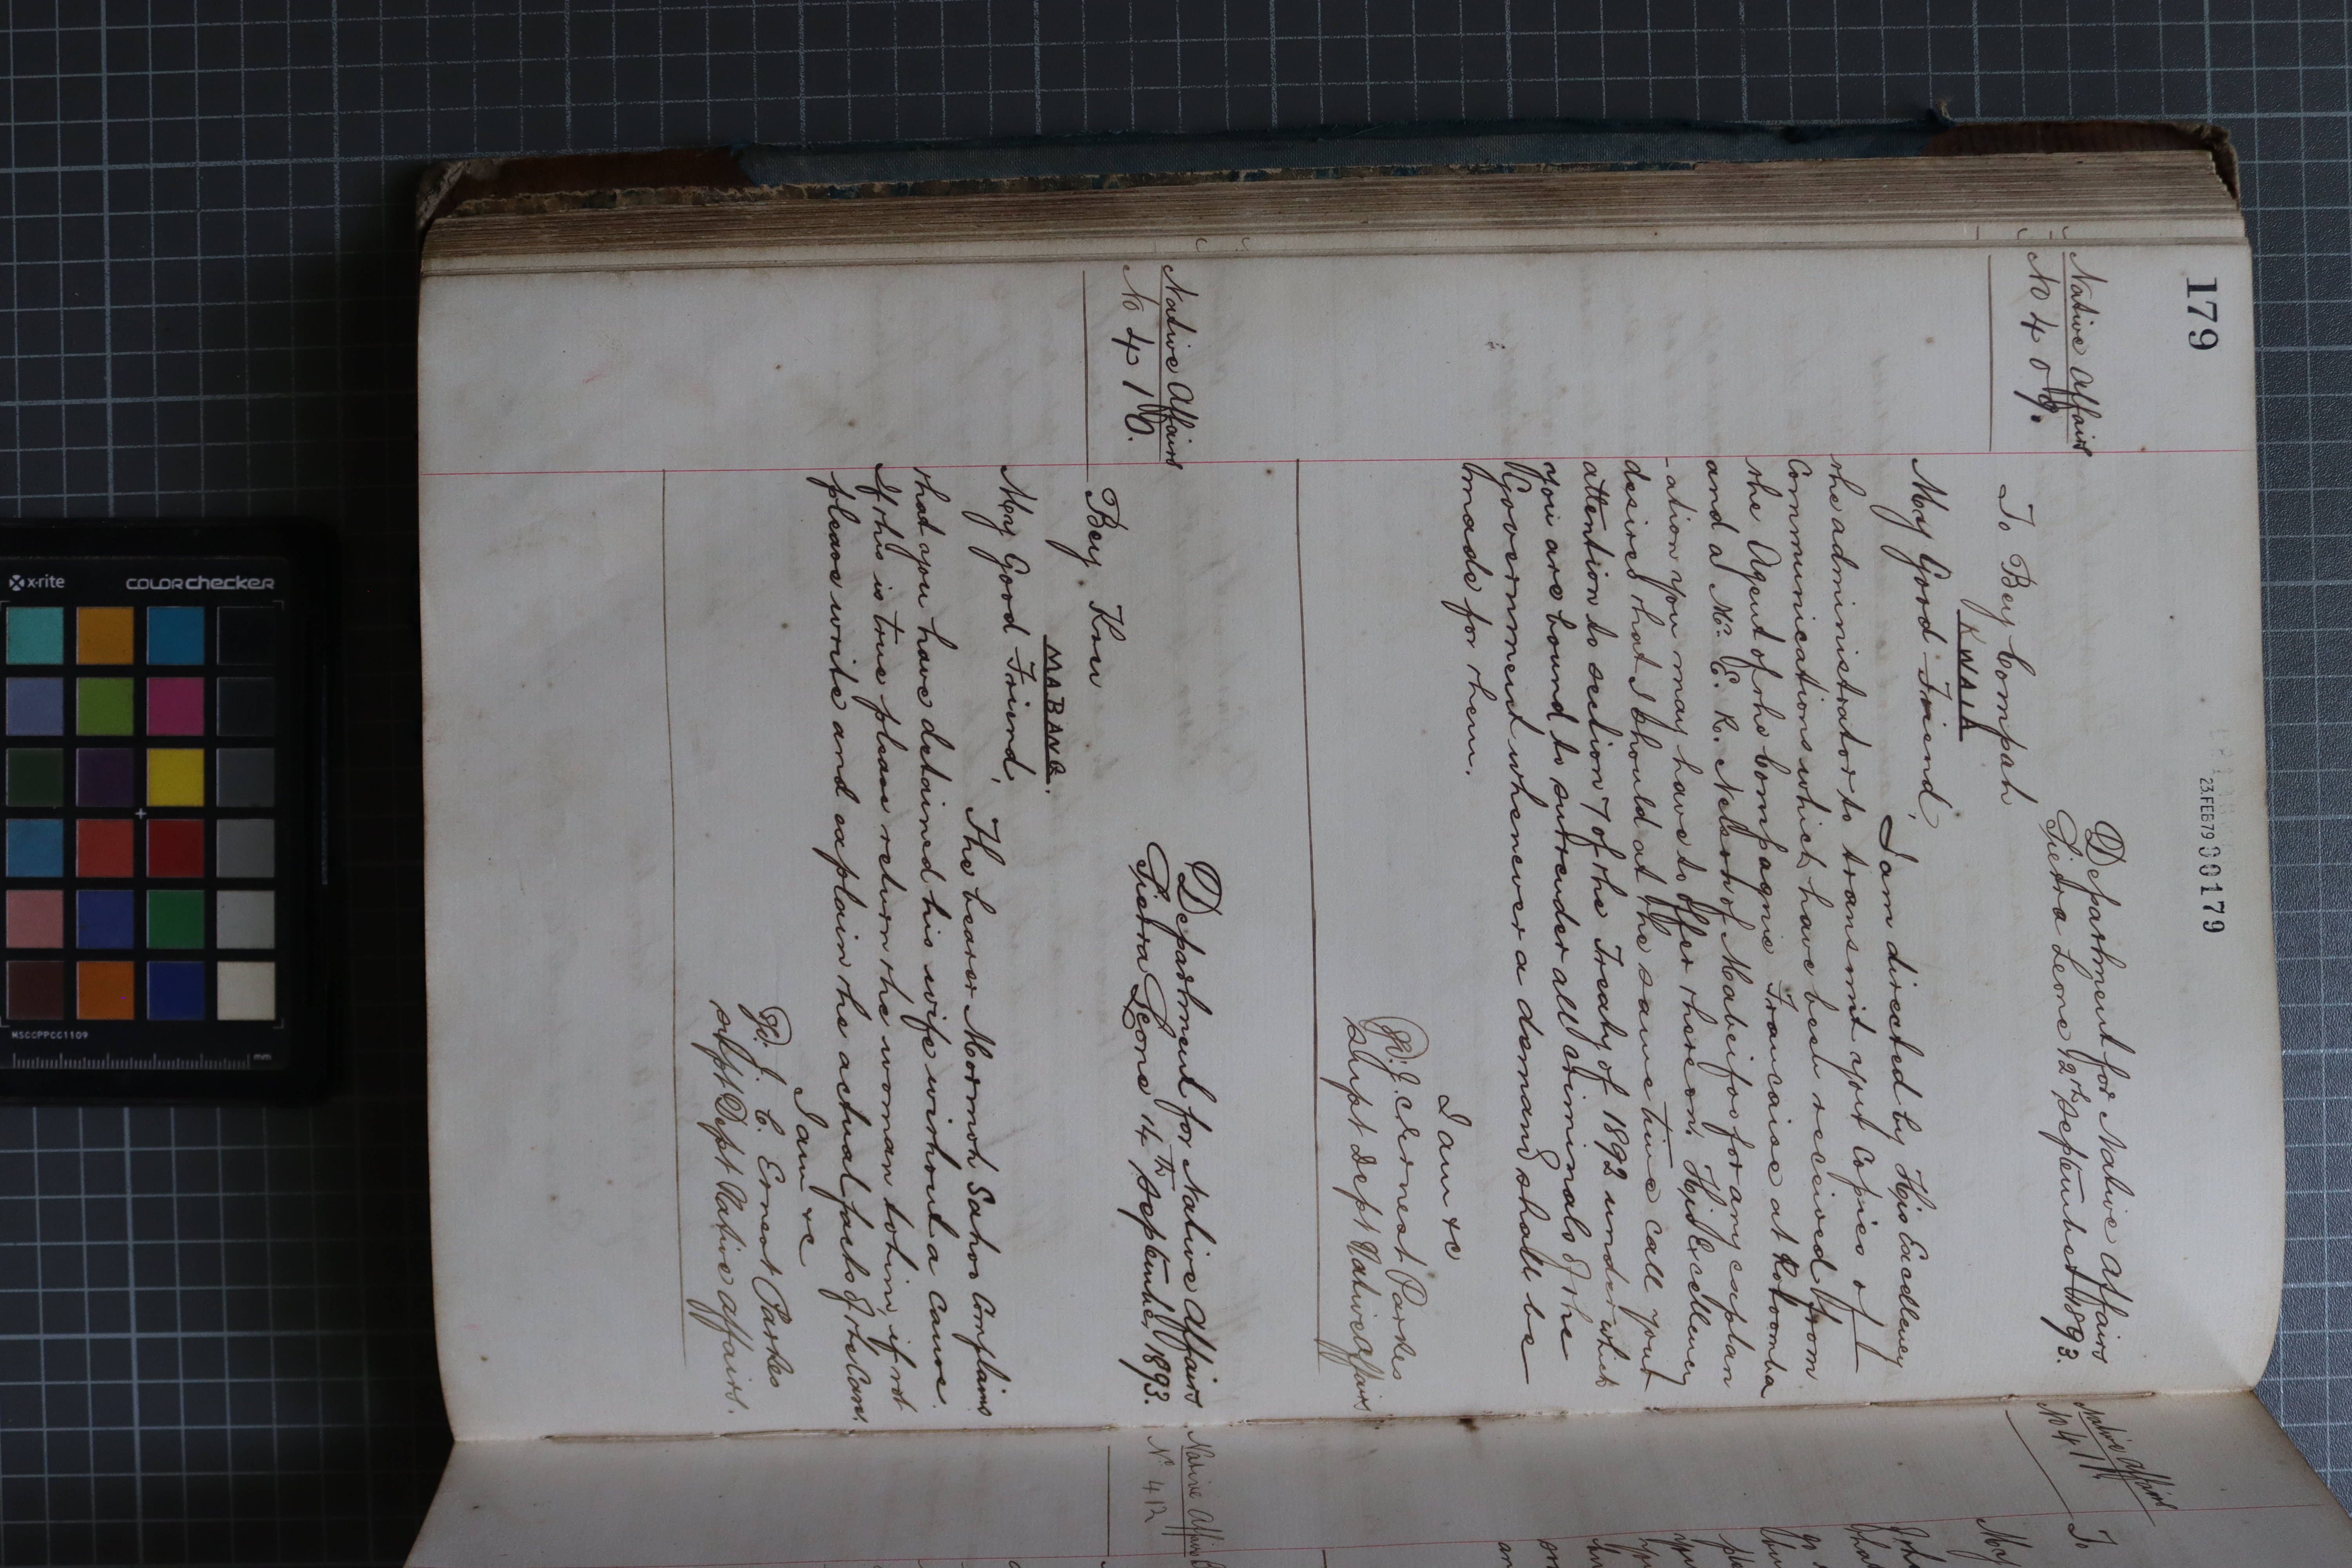 179
23.FEB79 00179
Native Affairs
No 409.
Department for Native Affairs
Sierra Leone 12th September 1893.
To Bey Compah
KWAIA
My Good Friend,
I am directed by His Excellency
the administrator to transmit your Copies of
Communications which have been received from
the Agent of the Compagnie Francaise at Rotomba
and a Mr. E. R. Nelson of Mabeifoo for any explan
-ation you may have to offer thereon. His Excellency
desires that I should at the same time call your
attention to section 7 of the Treaty of 1892 under which
you are bound to surrender all criminals of the
Government whenever a demand shall be
made for them.
I am &c
J. C. Ernest Parkes
Supt Dept Native Affairs
Native Affairs
No 410.
Department for Native Affairs
Sierra Leone 14th September 1893.
Bey Kru
MABANG.
My Good Friend,
The bearer Mormoh Sahoo Complains
that you have detained his wife without a Cause.
If this is true please return the woman to him, if not
please write and explain the actual facts of the Case.
I am &c
J. C. Ernest Parkes
Supt Dept Native Affairs.
Native Affairs
No 411.
To
My
Native Affairs
No 412
x-rite
COLORchecker
MSCCPPCC1109
mm